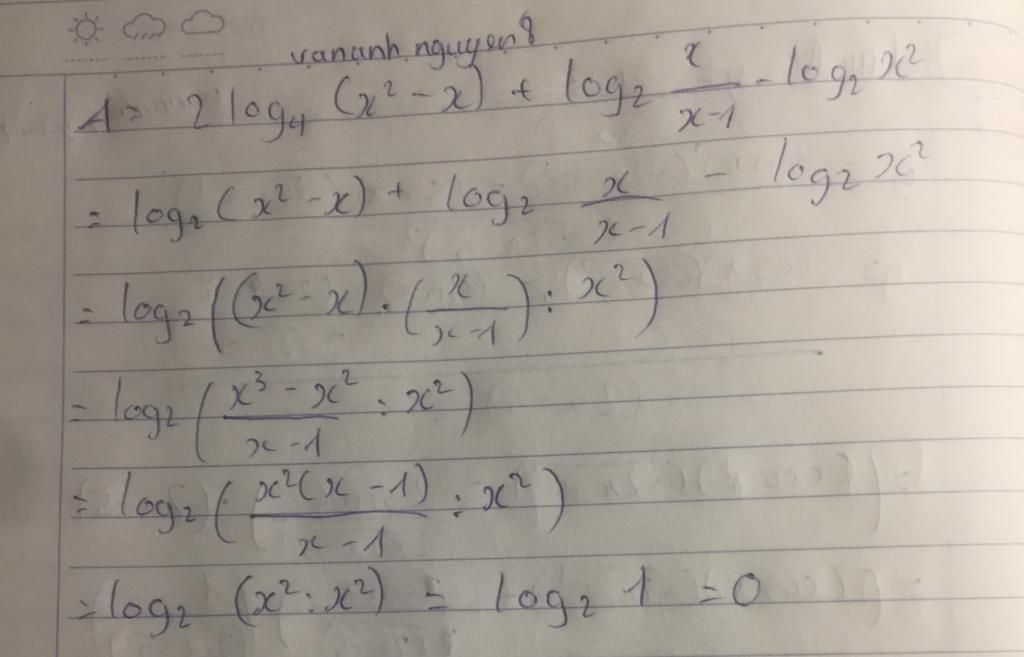 vananh.nguyen8
A = 2 log₄ (x² - x) + log₂ x/(x-1) - log₂ x²
= log₂ (x² - x) + log₂ x/(x-1) - log₂ x²
= log₂ ((x² - x) . (x/(x-1)) : x²)
= log₂ ((x³ - x²)/(x-1) : x²)
= log₂ (x²(x-1)/(x-1) : x²)
= log₂ (x² : x²) = log₂ 1 = 0